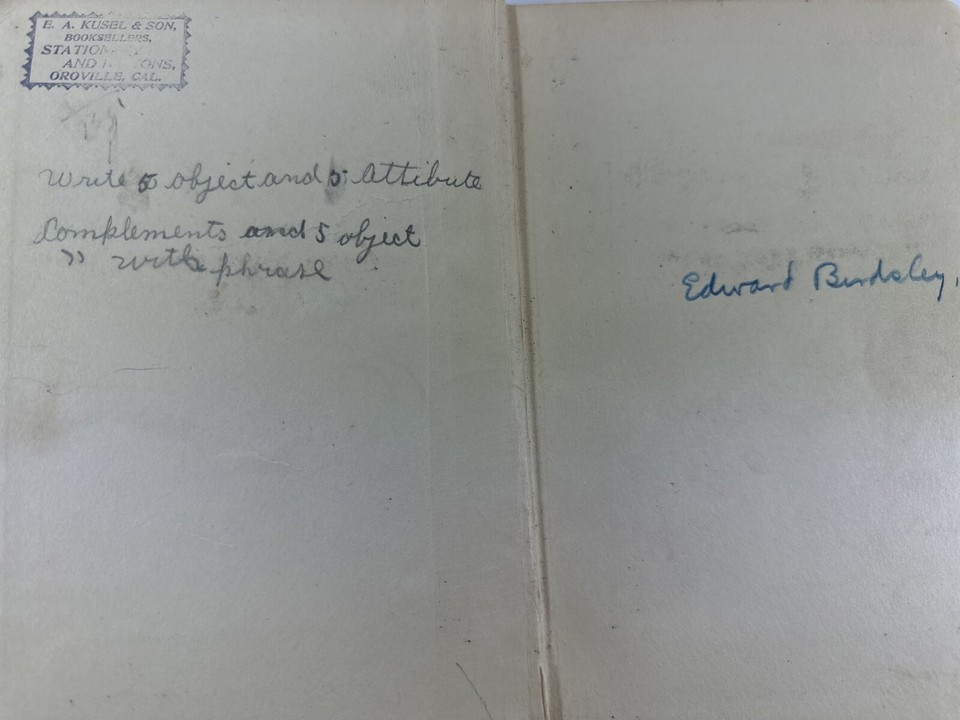 E. A. KUSEL & SON,
BOOKSELLERS,
AND
OROVILLE, CAL.
Write 5 object and 5 Attibute
Complements and 5 object
" with phrase
Edward Burdsley,